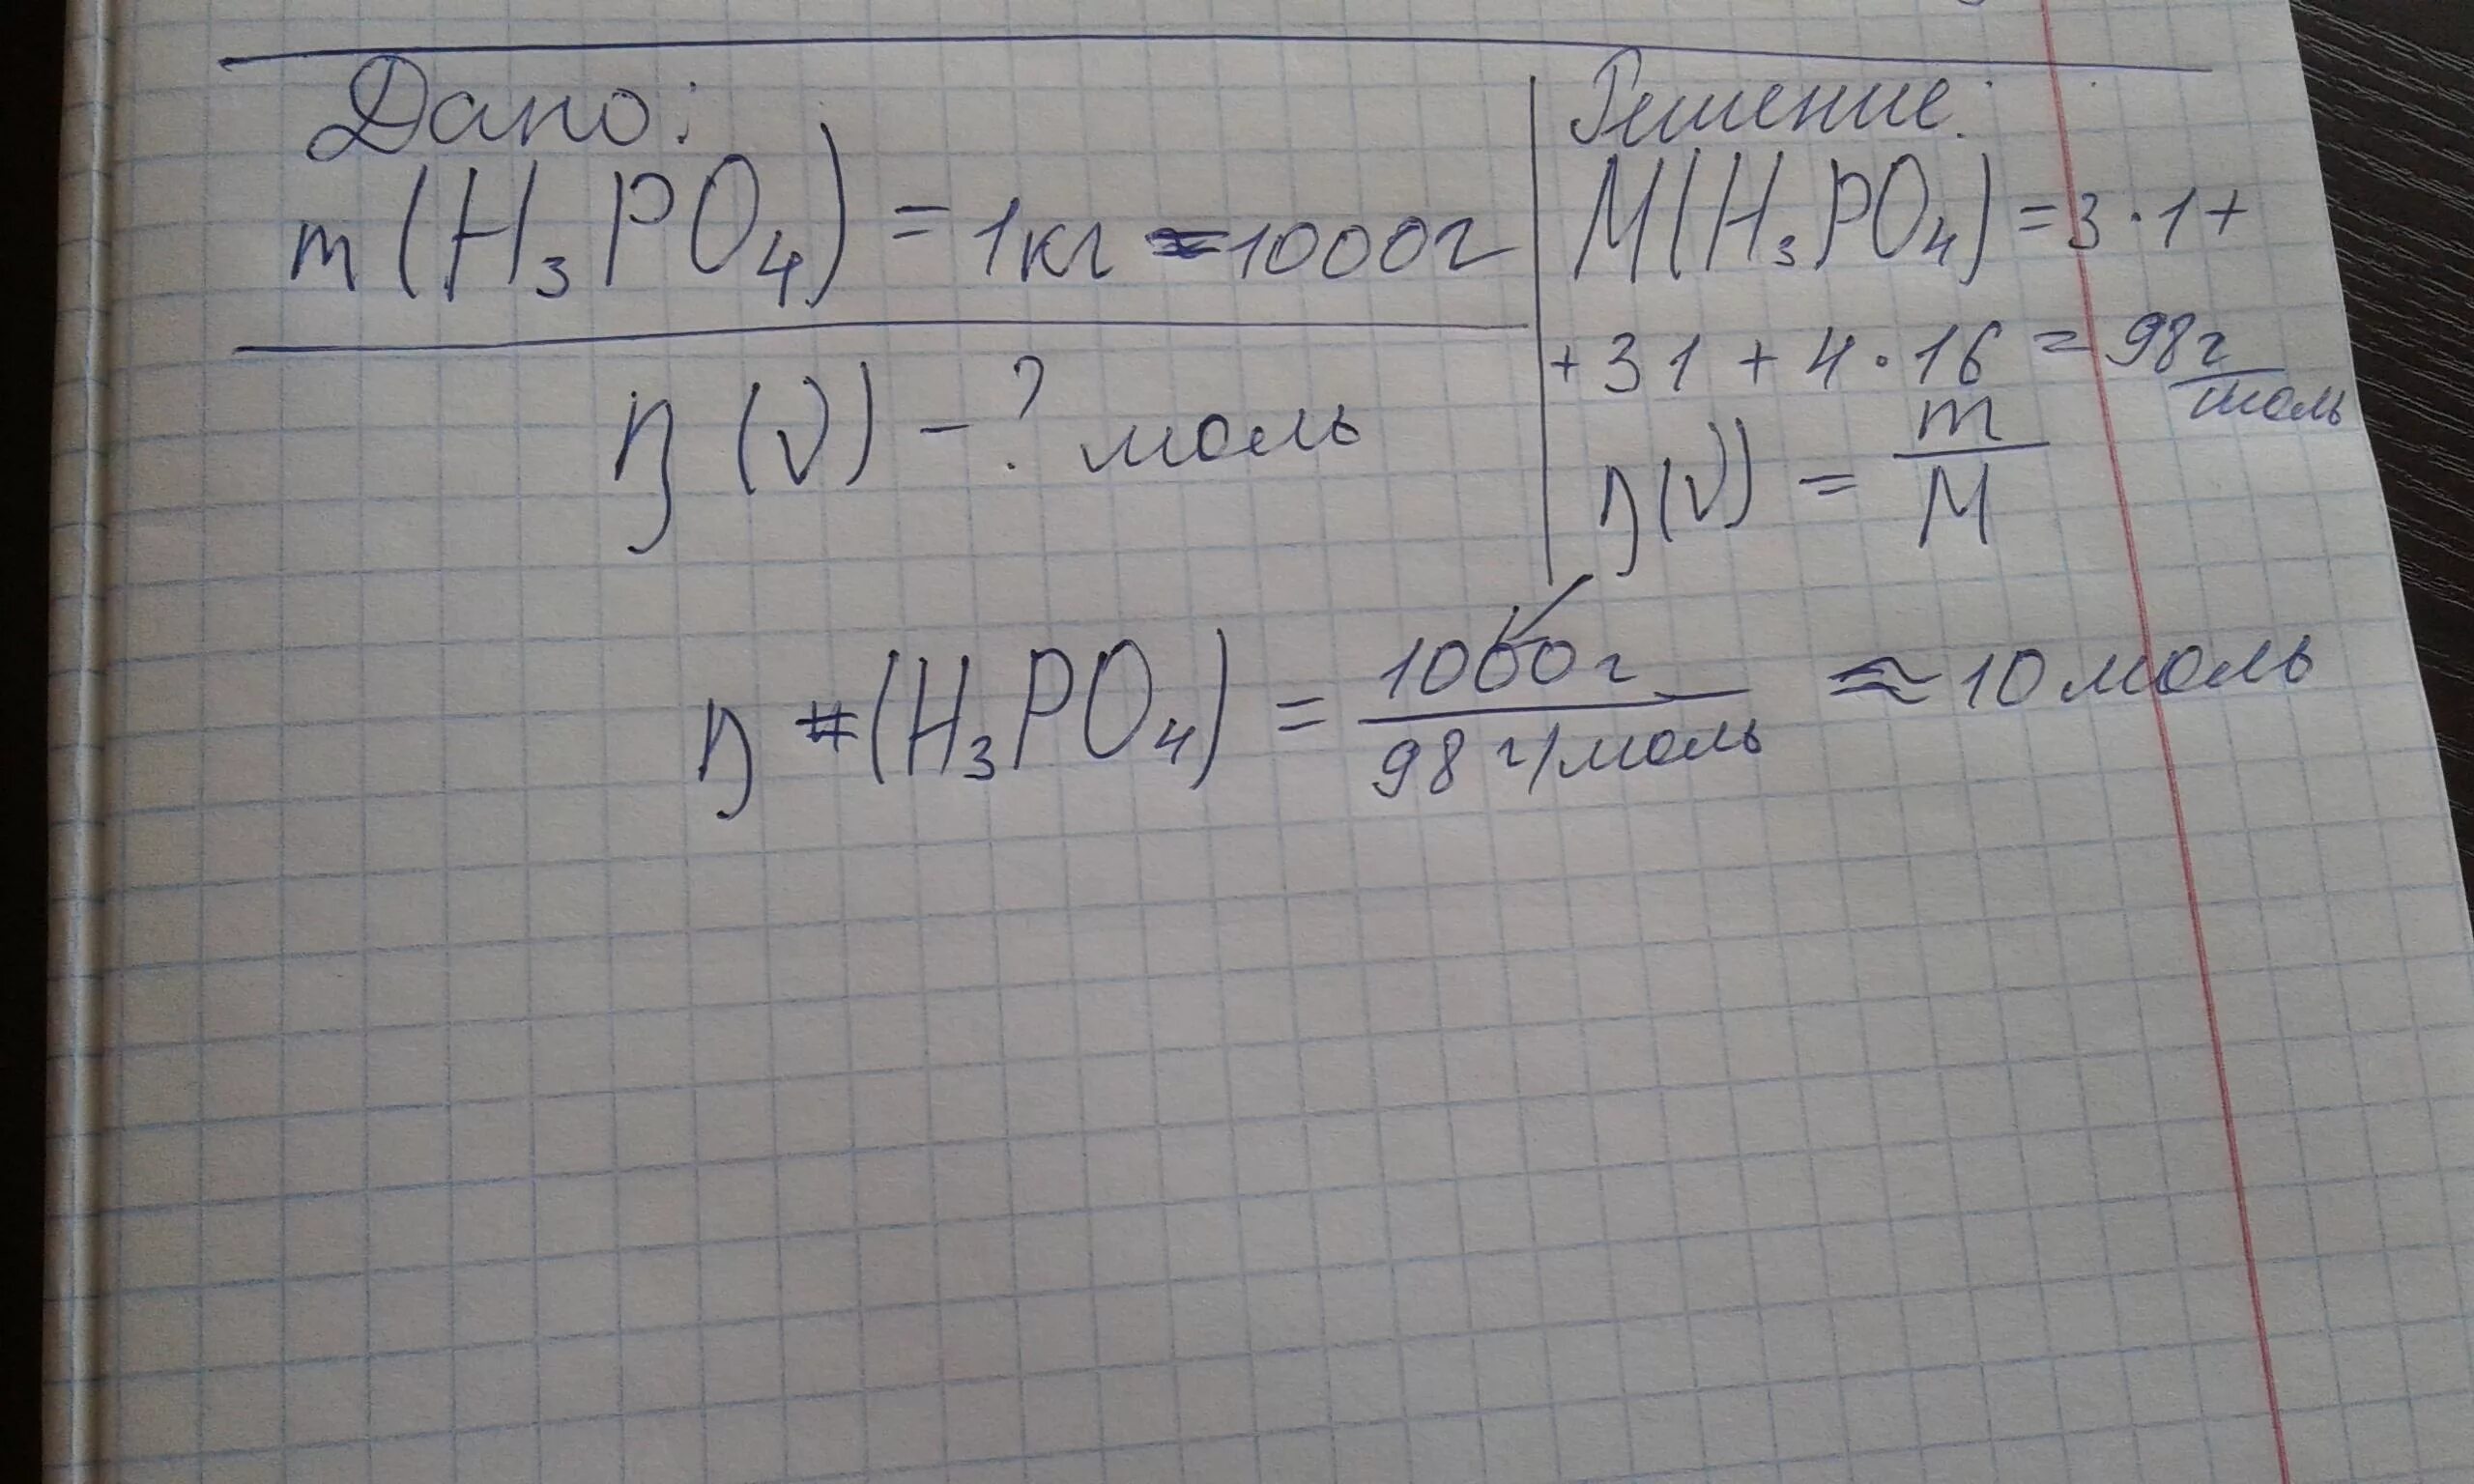 Дано:
m(H₃PO₄) = 1кг = 1000г
n (ν) - ? моль
Решение:
M(H₃PO₄) = 3·1+
+31 + 4·16 = 98г/моль
n(ν) = m/M
n (H₃PO₄) = 1000г / 98 г/моль ≈ 10 моль